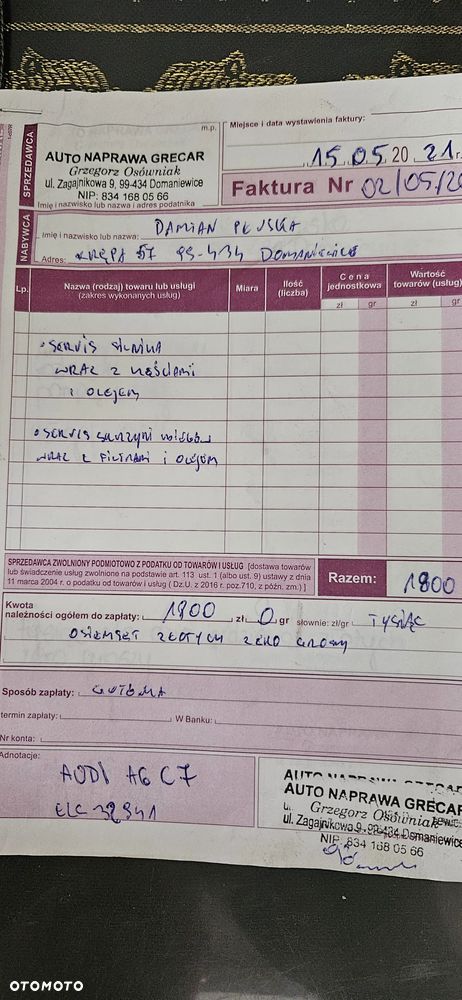 m.p.
SPRZEDAWCA
AUTO NAPRAWA GRECAR
Grzegorz Osówniak
ul. Zagajnikowa 9, 99-434 Domaniewice
NIP: 834 168 05 66
Imię i nazwisko lub nazwa i adres podatnika
Miejsce i data wystawienia faktury:
15.05.2021 r.
Faktura Nr 02/05/20
NABYWCA
Imię i nazwisko lub nazwa: DAMIAN
Adres: KRĘPA 57 99-434 DOMANIEWICE
Lp. Nazwa (rodzaj) towaru lub usługi (zakres wykonanych usług) Miara Ilość (liczba) Cena jednostkowa Wartość towarów (usług)
zł gr zł gr
• SERWIS SILNIKA
WRAZ Z CZĘŚCIAMI
I OLEJEM
• SERWIS SKRZYNI BIEGÓW
WRAZ Z FILTRAMI I OLEJEM
SPRZEDAWCA ZWOLNIONY PODMIOTOWO Z PODATKU OD TOWARÓW I USŁUG [dostawa towarów
lub świadczenie usług zwolnione na podstawie art. 113 ust. 1 (albo ust. 9) ustawy z dnia
11 marca 2004 r. o podatku od towarów i usług ( Dz.U. z 2016 r. poz.710, z późn. zm.) ]
Razem: 1800
Kwota
należności ogółem do zapłaty: 1800 zł 0 gr słownie: zł/gr TYSIĄC
OSIEMSET ZŁOTYCH ZERO GROSZY
Sposób zapłaty: GOTÓWKA
termin zapłaty: W Banku:
Nr konta:
Adnotacje:
AUDI A6 C7
AUTO NAPRAWA GRECAR
Grzegorz Osówniak
ul. Zagajnikowa 9, 99-434 Domaniewice
NIP: 834 168 05 66
OTOMOTO